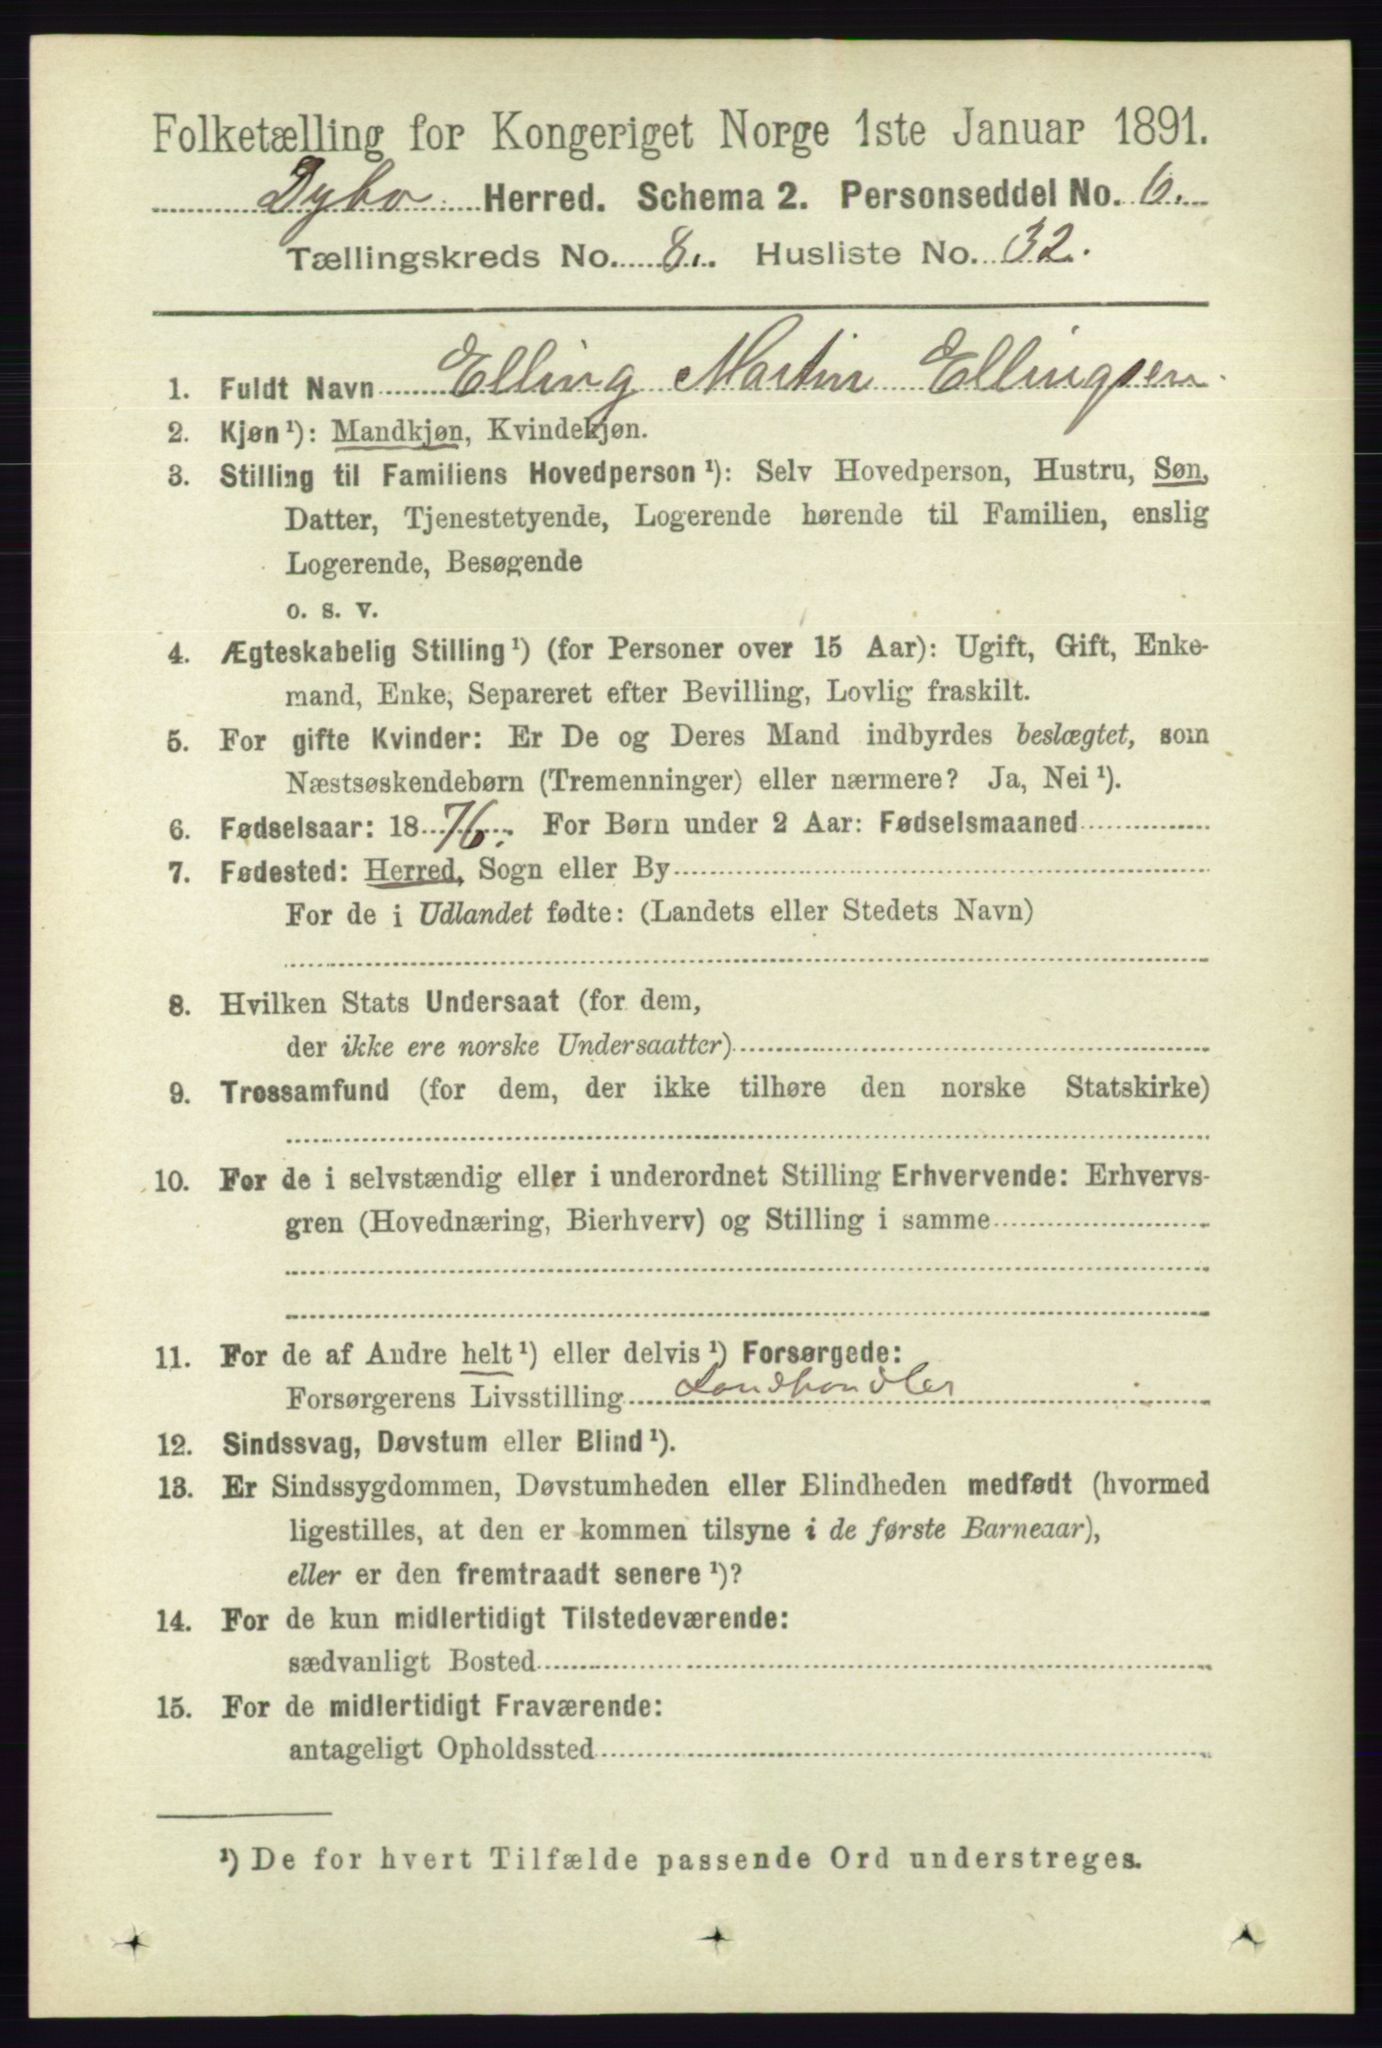 Folketælling for Kongeriget Norge 1ste Januar 1891.
Dybø Herred. Schema 2. Personseddel No. 6.
Tællingskreds No. 8. Husliste No. 32.
1. Fuldt Navn Elling Martin Ellingsen.
2. Kjøn ¹): Mandkjøn, Kvindekjøn.
3. Stilling til Familiens Hovedperson ¹): Selv Hovedperson, Hustru, Søn,
Datter, Tjenestetyende, Logerende hørende til Familien, enslig
Logerende, Besøgende
o. s. v.
4. Ægteskabelig Stilling ¹) (for Personer over 15 Aar): Ugift, Gift, Enke-
mand, Enke, Separeret efter Bevilling, Lovlig fraskilt.
5. For gifte Kvinder: Er De og Deres Mand indbyrdes beslægtet, som
Næstsøskendebørn (Tremenninger) eller nærmere? Ja, Nei ¹).
6. Fødselsaar: 1876. For Børn under 2 Aar: Fødselsmaaned
7. Fødested: Herred, Sogn eller By
For de i Udlandet fødte: (Landets eller Stedets Navn)
8. Hvilken Stats Undersaat (for dem,
der ikke ere norske Undersaatter)
9. Trossamfund (for dem, der ikke tilhøre den norske Statskirke)
10. For de i selvstændig eller i underordnet Stilling Erhvervende: Erhvervs-
gren (Hovednæring, Bierhverv) og Stilling i samme
11. For de af Andre helt ¹) eller delvis ¹) Forsørgede:
Forsørgerens Livsstilling Landhandler
12. Sindssvag, Døvstum eller Blind ¹).
13. Er Sindssygdommen, Døvstumheden eller Blindheden medfødt (hvormed
ligestilles, at den er kommen tilsyne i de første Barneaar),
eller er den fremtraadt senere ¹)?
14. For de kun midlertidigt Tilstedeværende:
sædvanligt Bosted
15. For de midlertidigt Fraværende:
antageligt Opholdssted
¹) De for hvert Tilfælde passende Ord understreges.